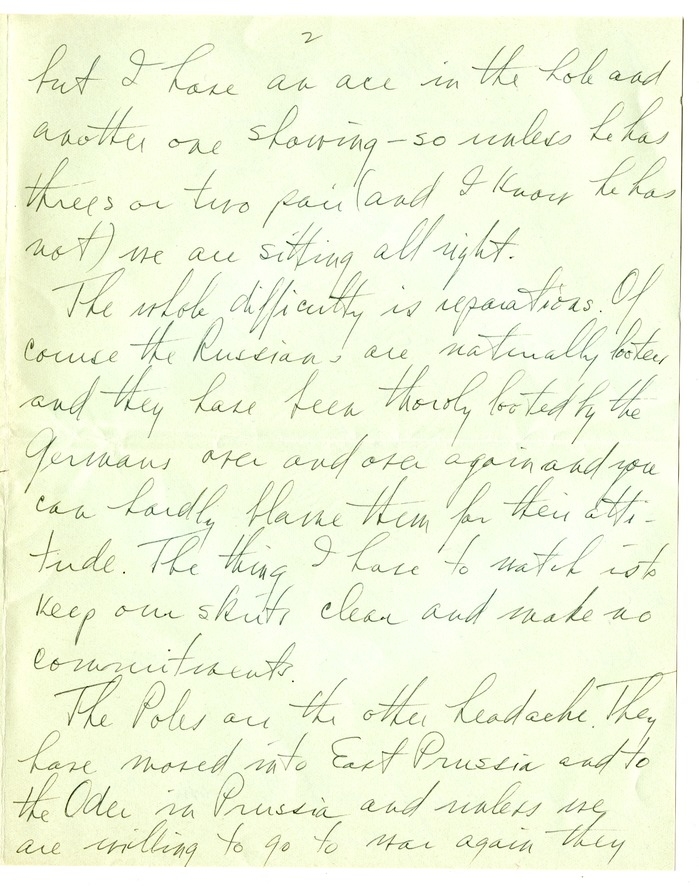 2
but I have an ace in the hole and
another one showing - so unless he has
threes or two pair (and I know he has
not) we are sitting all right.
The whole difficulty is reparations. Of
course the Russians are naturally looters
and they have been thoroly looted by the
Germans over and over again and you
can hardly blame them for their atti-
tude. The thing I have to watch is to
keep our skirts clean and make no
commitments.
The Poles are the other headache. They
have moved into East Prussia and to
the Oder in Prussia and unless we
are willing to go to war again they